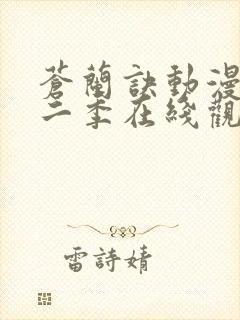 蒼蘭訣動漫
二季在綫觀
雷詩婧